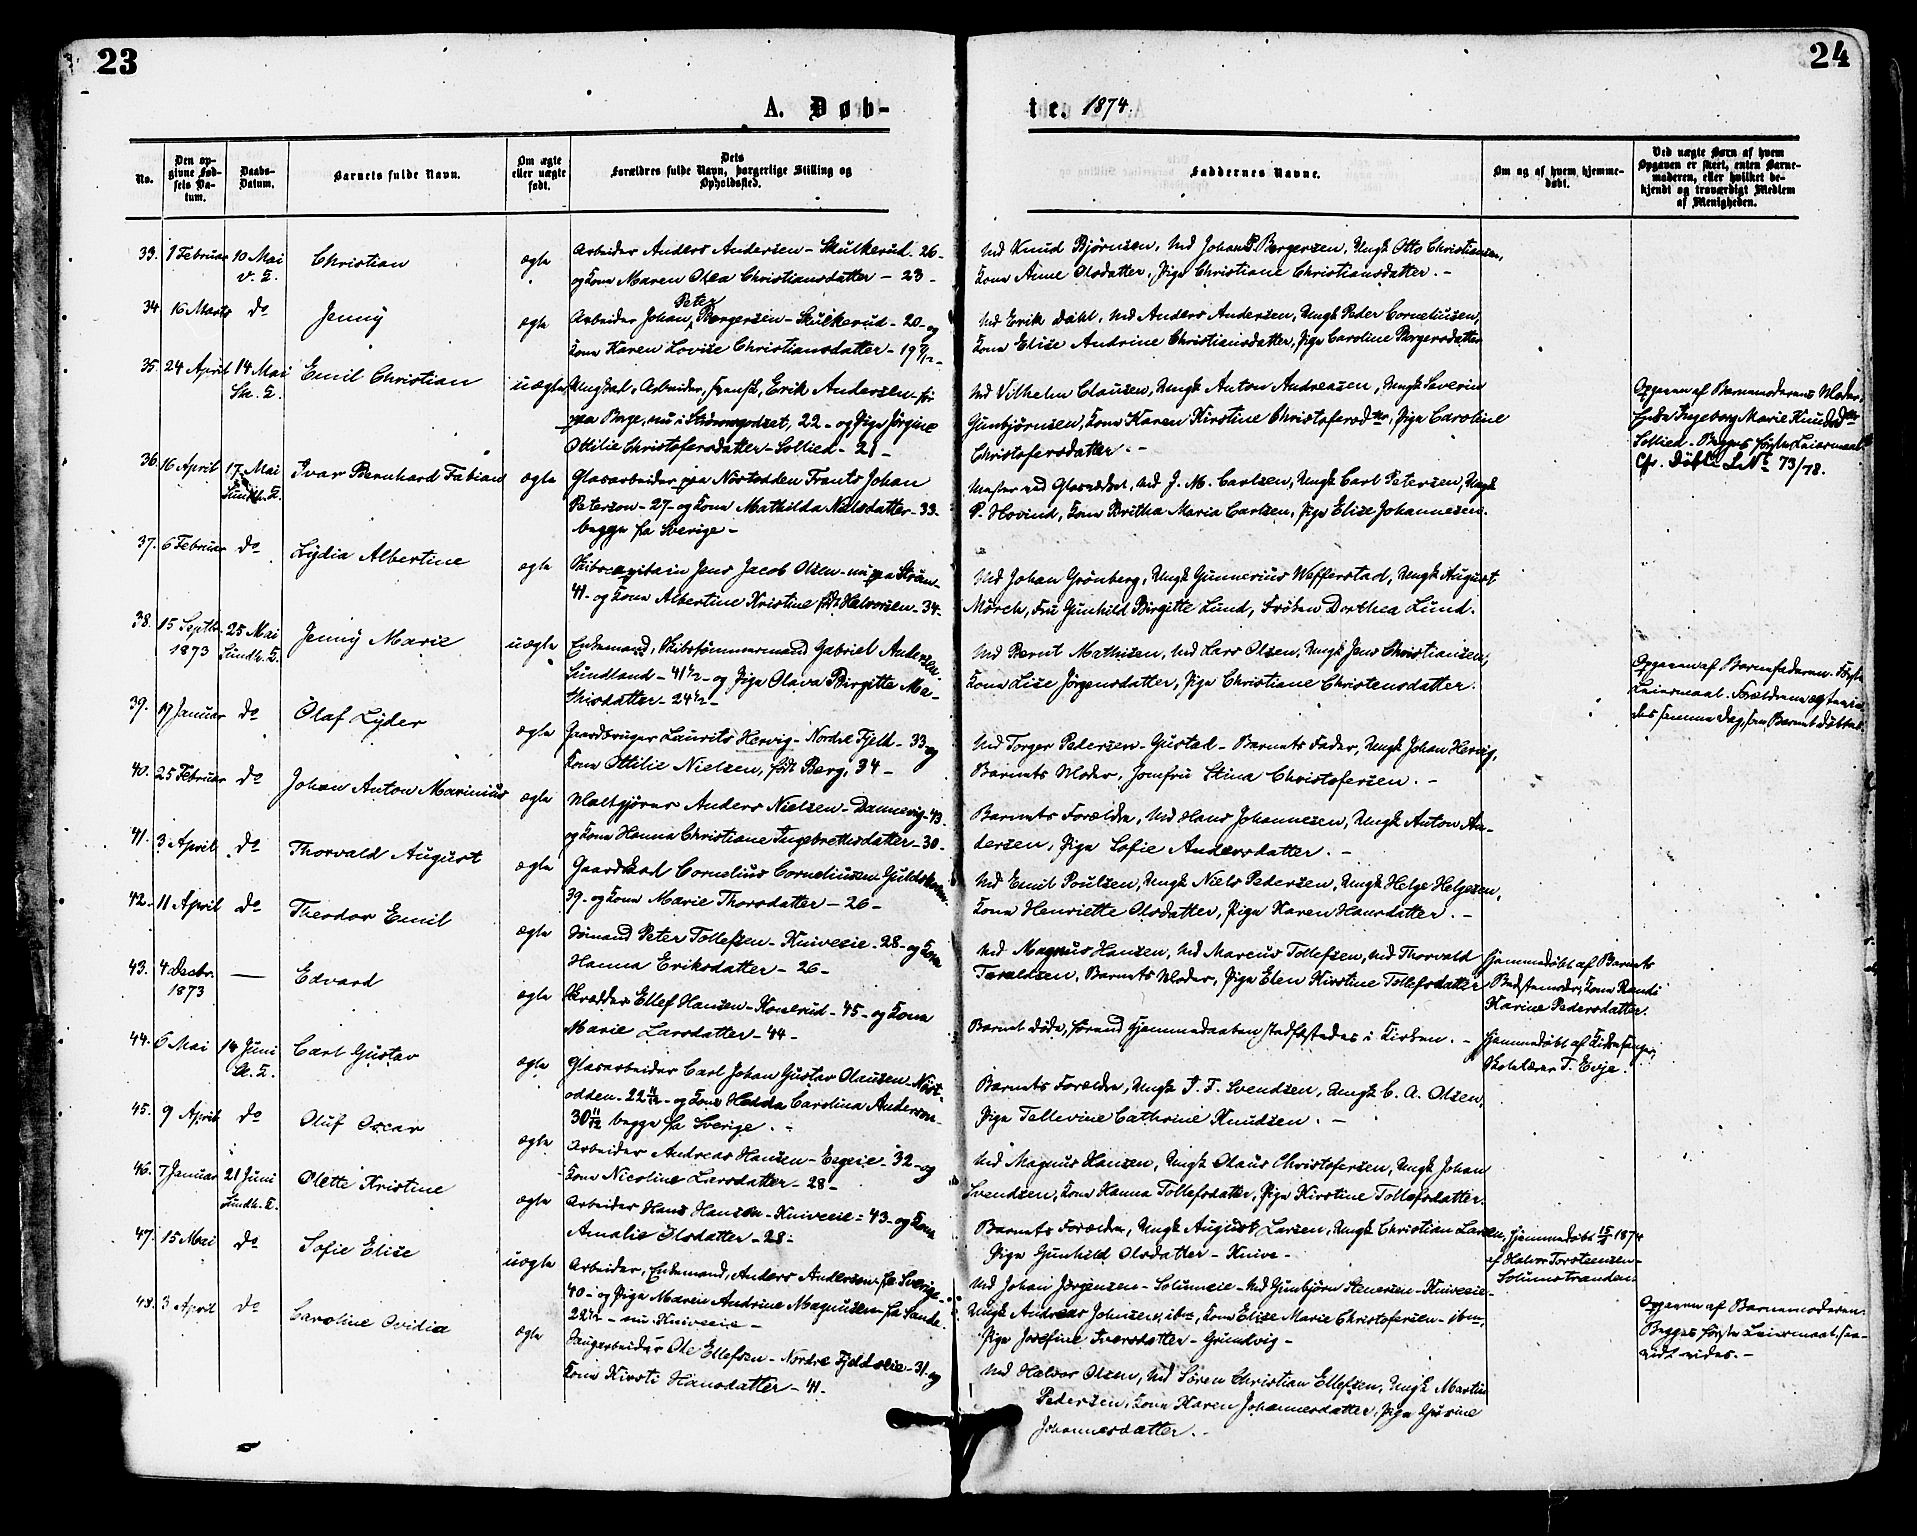 23
24
A. Døb-
te. 1874.
No.
Den op-
givne Fød-
sels Da-
tum.
Daabs-
Datum.
Barnets fulde Navn.
Om ægte
eller uægte
født.
Dets
Forældres fulde Navn, borgerlige Stilling og
Opholdssted.
Faddernes Navne.
Om og af hvem hjemme-
døbt.
Ved uægte Børn af hvem
Opgaven er skeet, enten Barne-
moderen, eller hvilket be-
kjendt og troværdigt Medlem
af Menigheden.
33. 1 Februar 10 Mai Christian ægte Arbeider Anders Andersen - Skulkerud - 26 -
og Kone Maren Olea Christiansdatter - 23 -
Md Knud Bjørnsen, Md Johan P. Bergersen, Ungk Otto Christiansen,
Kone Anne Olsdatter, Pige Christiane Christiansdatter. -
34 16 Marts do Jenny ægte Arbeider Johan Peter Bergersen - Skulkerud - 20 - og
Kone Karen Lovise Christiansdatter - 19
Md Erik Dahl, Md Anders Andersen, Ungk Peder Corneliusen,
Kone Elise Andrine Christiansdatter, Pige Caroline Bergersdatter
35. 24 April 14 Mai Emil Christian uægte Ungkal, Arbeider, Erik Andersen
nu i Strømsgodset, 22 - og Pige Jørgine
Ottilie Christofersdatter - Sollied - 21 -
Md Vilhelm Clausen, Ungk Anton Andreasen, Ungk Severin
Gunbjørnsen, Kone Karen Kirstine Christofersdtr, Pige Caroline
Christofersdatter. -
Opgaven af Barnemoderens Moder,
Enke Ingeborg Marie Knudsdtr
Sollied - Begges første Leiermaal
Cfr. Døbte L No 73/78.
36. 16 April 17 Mai Ivar Bernhard Fabian ægte Glasarbeider paa Nøstodden Frants Johan
Sundh. K.
Petersen - 27 - og Kone Mathilda Nielsdatter - 33 -
begge fra Sverige -
Mester ved Glasværket, Md J. M. Carlsen, Ungk Carl Petersen, Ungk
P. Hovind, Kone Britha Maria Carlsen, Pige Elise Johannesen.
37. 6 Februar do Lydia Albertine ægte Skibscapitain Jens Jacob Olsen - nu paa Strøm -
41 - og Kone Albertine Kristine født Halvorsen - 34 -
Md Johan Grønberg, Ungk Gunnerius Wefferstad, Ungk August
Mørch, Fru Gunhild Birgitte Lund, Frøken Dorthea Lund.
38. 15 Septbr. 1873 25 Mai Jenny Marie uægte Enkemand, Skibstømmermand Gabriel Andersen -
Sundh. K.
Sundland - 41½ - og Pige Olava Birgitte Ma-
thisdatter - 24½ -
Md Bernt Mathisen, Md Lars Olsen, Ungk Jens Christiansen,
Kone Lise Jørgensdatter, Pige Christiane Christensdatter.
Opgaven af Barnefaderen. Første
Leiermaal. Forældrene ægtevie-
des samme Dag, som Barnet døbtes.
39. 19 Januar do Olaf Lyder ægte Gaardbruger Laurits Hervig - Nordre Fjeld - 33 og
Kone Ottilie Nielsen, født Berg, 34 -
Md Torger Pedersen - Gustad - Barnets Fader, Ungk Johan Hervig,
Barnets Moder, Jomfru Stina Christofersen. -
40. 25 Februar do Johan Anton Marinius ægte Maltgjører Anders Nielsen - Dannevig - 43 -
og Kone Hanna Christiane Ingebretsdatter - 30 -
Barnets Forældre, Md Hans Johannesen, Ungk Anton An-
dersen, Pige Sofie Andersdatter. -
41. 3 April do Thorvald August ægte Gaardskad Cornelius Corneliusen
39 - og Kone Marie Thorsdatter - 26 -
Md Emil Poulsen, Ungk Niels Pedersen, Ungk Helge Helgesen,
Kone Henriette Olsdatter, Pige Karen Hansdatter. -
42. 11 April do Theodor Emil ægte Sømand Peter Tollefsen - Kniveeie - 28 - og Kone
Hanna Eriksdatter - 26 -
Md Magnus Hansen, Md Marcus Tollefsen, Md Thorvald
Taraldsen, Barnets Moder, Pige Elen Kirstine Tollefsdatter
Hjemmedøbt af Barnets
Bedstemoder, Kone Randi
Karine Pedersdatter.
43. 4 Decbr. 1873 — Edvard ægte Skrædder Ellef Hansen - Konerud - 45 - og Kone
Marie Larsdatter - 44 -
Barnet døde, førend Hjemmedaaben stadfæstedes i Kirken. -
Hjemmedøbt af Kirkesanger,
Skolelærer T. Evje.
44. 6 Mai 14 Juni Carl Gustav ægte Glasarbeider Carl Johan Gustav Olausen - Nøst-
odden - 22 - og Kone Hedda Carolina Andersen -
30 begge fra Sverige. -
Barnets Forældre, Ungk J. F. Svendsen, Ungk C. A. Olsen,
Pige Tallevine Cathrine Knudsen. -
45. 9 April do Oluf Oscar ægte Arbeider Andreas Hansen - Eegeie - 32 - og
Kone Nicoline Larsdatter - 28 -
Md Magnus Hansen, Ungk Olaus Christofersen, Ungk Johan
Svendsen, Kone Hanna Tollefsdatter, Pige Kirstine Tollefsdatter.
46. 7 Januar 21 Juni Olette Kristine ægte Arbeider Hans Hansen - Kniveeie - 43 - og Kone
Sundh. K.
Amalie Olsdatter - 28 -
Barnets Forældre, Ungk August Larsen, Ungk Christian Larsen,
Pige Gunhild Olsdatter - Knive -
Hjemmedøbt 1874
af Halvor Torsteensen -
Solumstranden
47. 15 Mai do Sofie Elise uægte Arbeider, Enkemand, Anders Andersen fra Sverige -
40 - og Pige Maren Andrine Magnusen fra Sande -
22½ - nu Kniveeie -
Md Johan Jørgensen - Solumeie - Md Gunbjørn Stenersen - Kniveeie -
Ungk Andreas Johnsen, ibm, Kone Elise Marie Christofersen - ibm,
Pige Josefine Iversdatter - Grundvig -
Opgaven af Barnemoderen.
Begges første Leiermaal, saa-
vidt vides. -
48. 3 April do Caroline Ovidia ægte Saugarbeider Ole Ellefsen - Nordre Fjeldseie - 31 - og
Kone Kirsti Hansdatter - 41 -
Md Halvor Olsen, Md Søren Christian Ellefsen, Ungk Martin
Pedersen, Kone Karen Johannesdatter, Pige Gusine
Johannesdatter. -